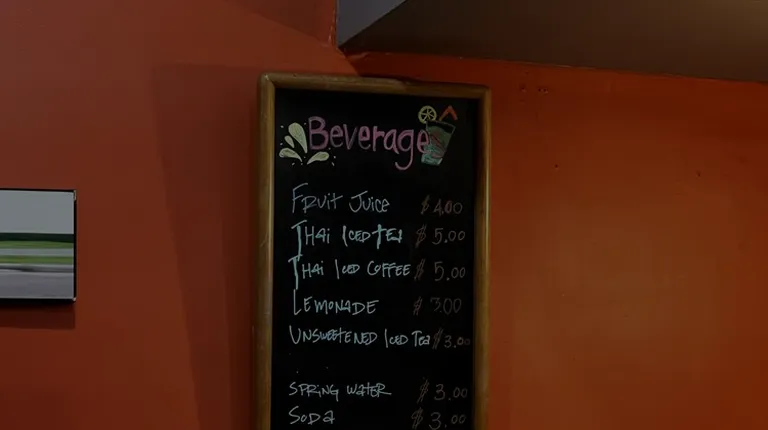 Beverage
Fruit Juice $4.00
Thai Iced Tea $5.00
Thai Iced Coffee $5.00
Lemonade $3.00
Unsweetened Iced Tea $3.00
Spring Water $3.00
Soda $3.00